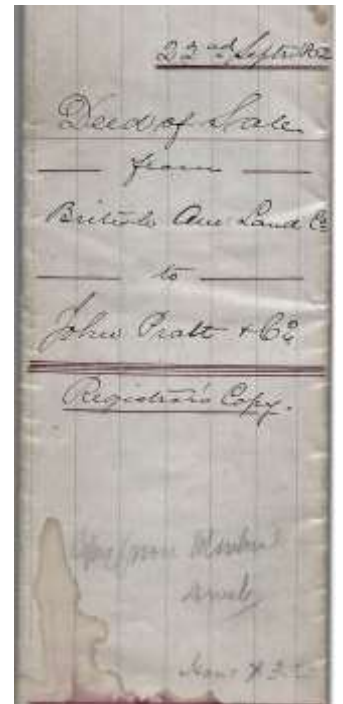 22nd Sept
Deed of Sale
from
British Am Land Co
to
John Pratt & Co
Registrar's Copy.